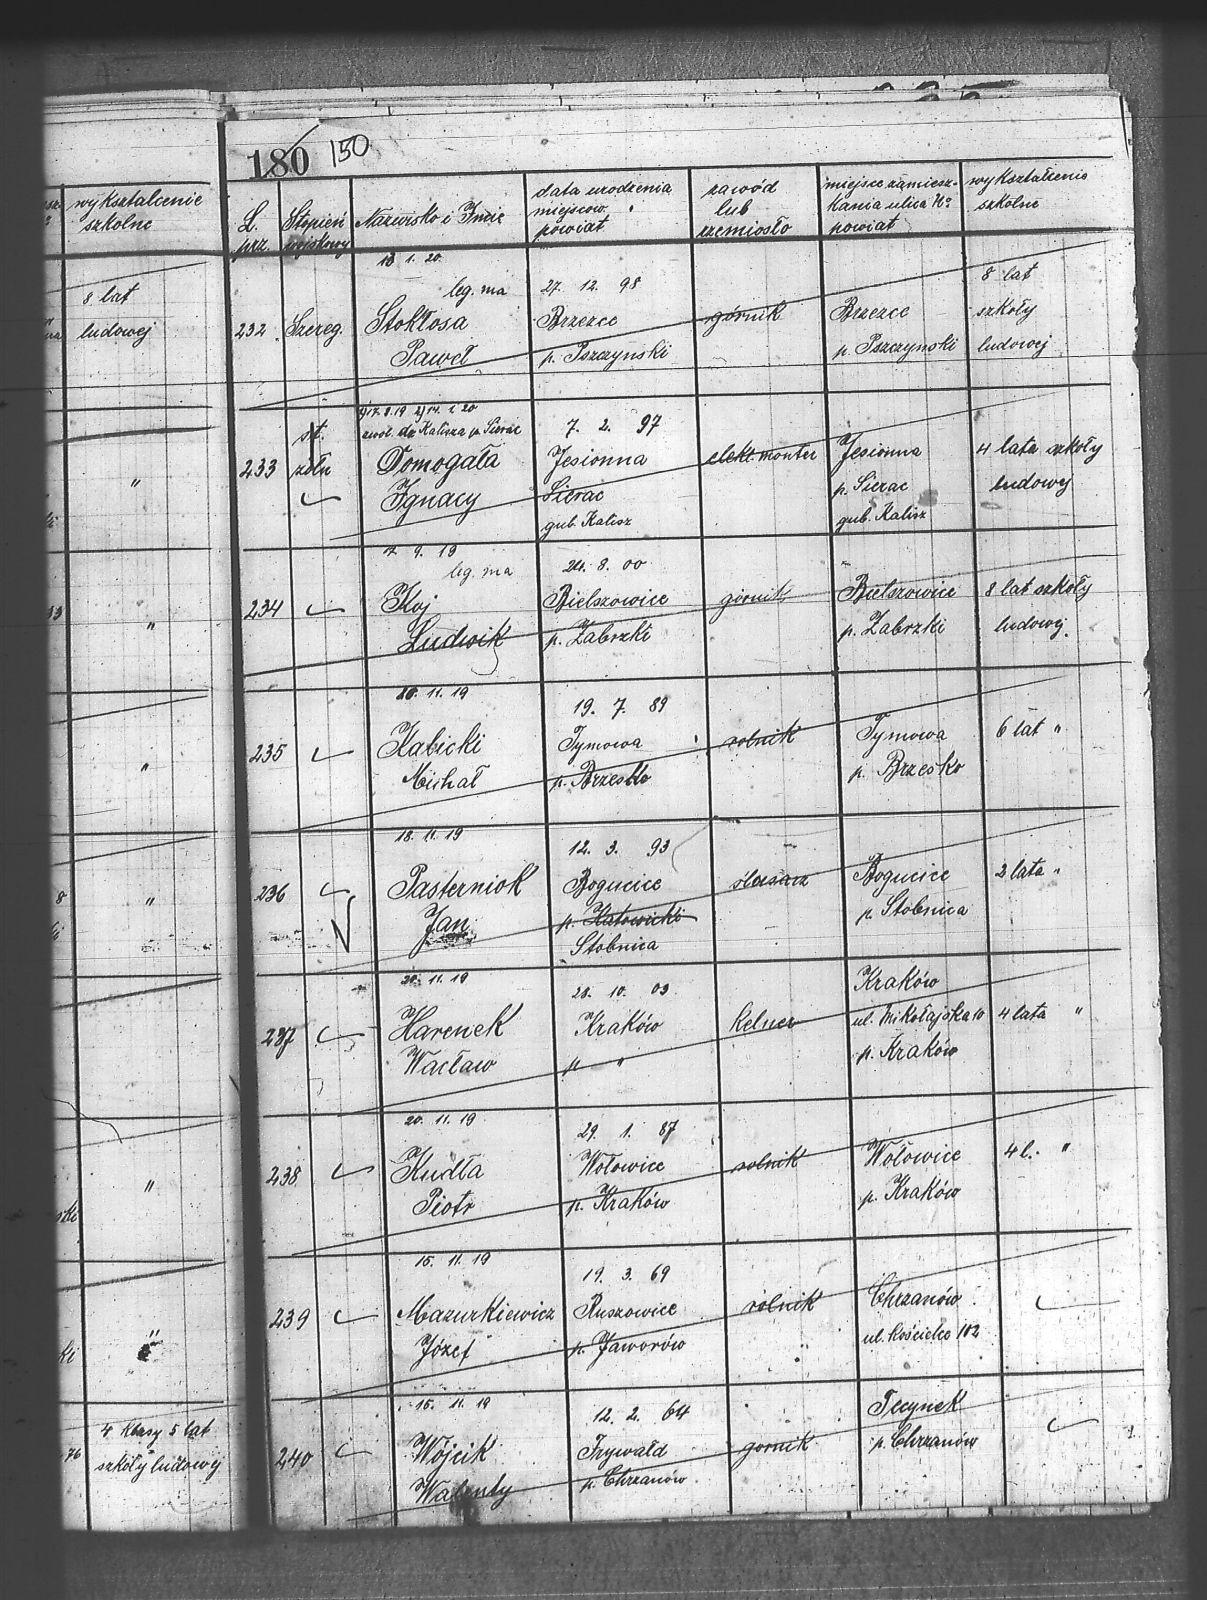 wykształcenie
szkolne
8 lat
ludowej
"
"
"
"
"
"
4 klasy 5 lat
szkoły ludowej
180 150
L.
prz.
Stopień
wojskowy
Nazwisko i Imię
data urodzenia
miejscow.
powiat
zawód
lub
rzemiosło
miejsce zamiesz-
kania ulica No
powiat
wykształcenie
szkolne
13 1. 20
leg. ma
232
Szereg.
Stokłosa
Paweł
27. 12. 98
Brzezce
p. Pszczynski
górnik
Brzezce
p. Pszczynski
8 lat
szkoły
ludowej
1) 17. 8. 19 2) 14. 1. 20
zwol. do Kalisza p. Sierac
233
st.
żołn
Domogała
Ignacy
7. 2. 97
Jesionna
Sierac
gub. Kalisz
elekt. monter
Jesionna
p. Sierac
gub. Kalisz
4 lata szkoły
ludowej
7. 9. 19
leg. ma
234
Koj
Ludwik
24. 8. 00
Bielszowice
p. Zabrzki
górnik
Bielszowice
p. Zabrzki
8 lat szkoły
ludowej.
20. 11. 19
235
Żabicki
Michał
19. 7. 89
Tymowa
p. Brzesko
rolnik
Tymowa
p. Brzesko
6 lat "
18. 11. 19
236
Pasterniok
Jan
12. 3. 93
Bogucice
p. Katowicki
Stobnica
ślusarz
Bogucice
p. Stobnica
2 lata "
20. 11. 19
237
Harenek
Wacław
28. 10. 03
Kraków
" "
kelner
Kraków
ul. Mikołajska 10
p. Kraków
4 lata "
20. 11. 19
238
Kudła
Piotr
29. 1. 87
Wołowice
p. Kraków
rolnik
Wołowice
p. Kraków
4 l. "
15. 11. 19
239
Mazurkiewicz
Józef
19. 3. 69
Ruszowice
p. Jaworów
rolnik
Chrzanów
ul. Kościelec 102
15. 11. 19
240
Wójcik
Walenty
12. 2. 64
Frywałd
p. Chrzanów
gornik
Tęcynek
p. Chrzanów